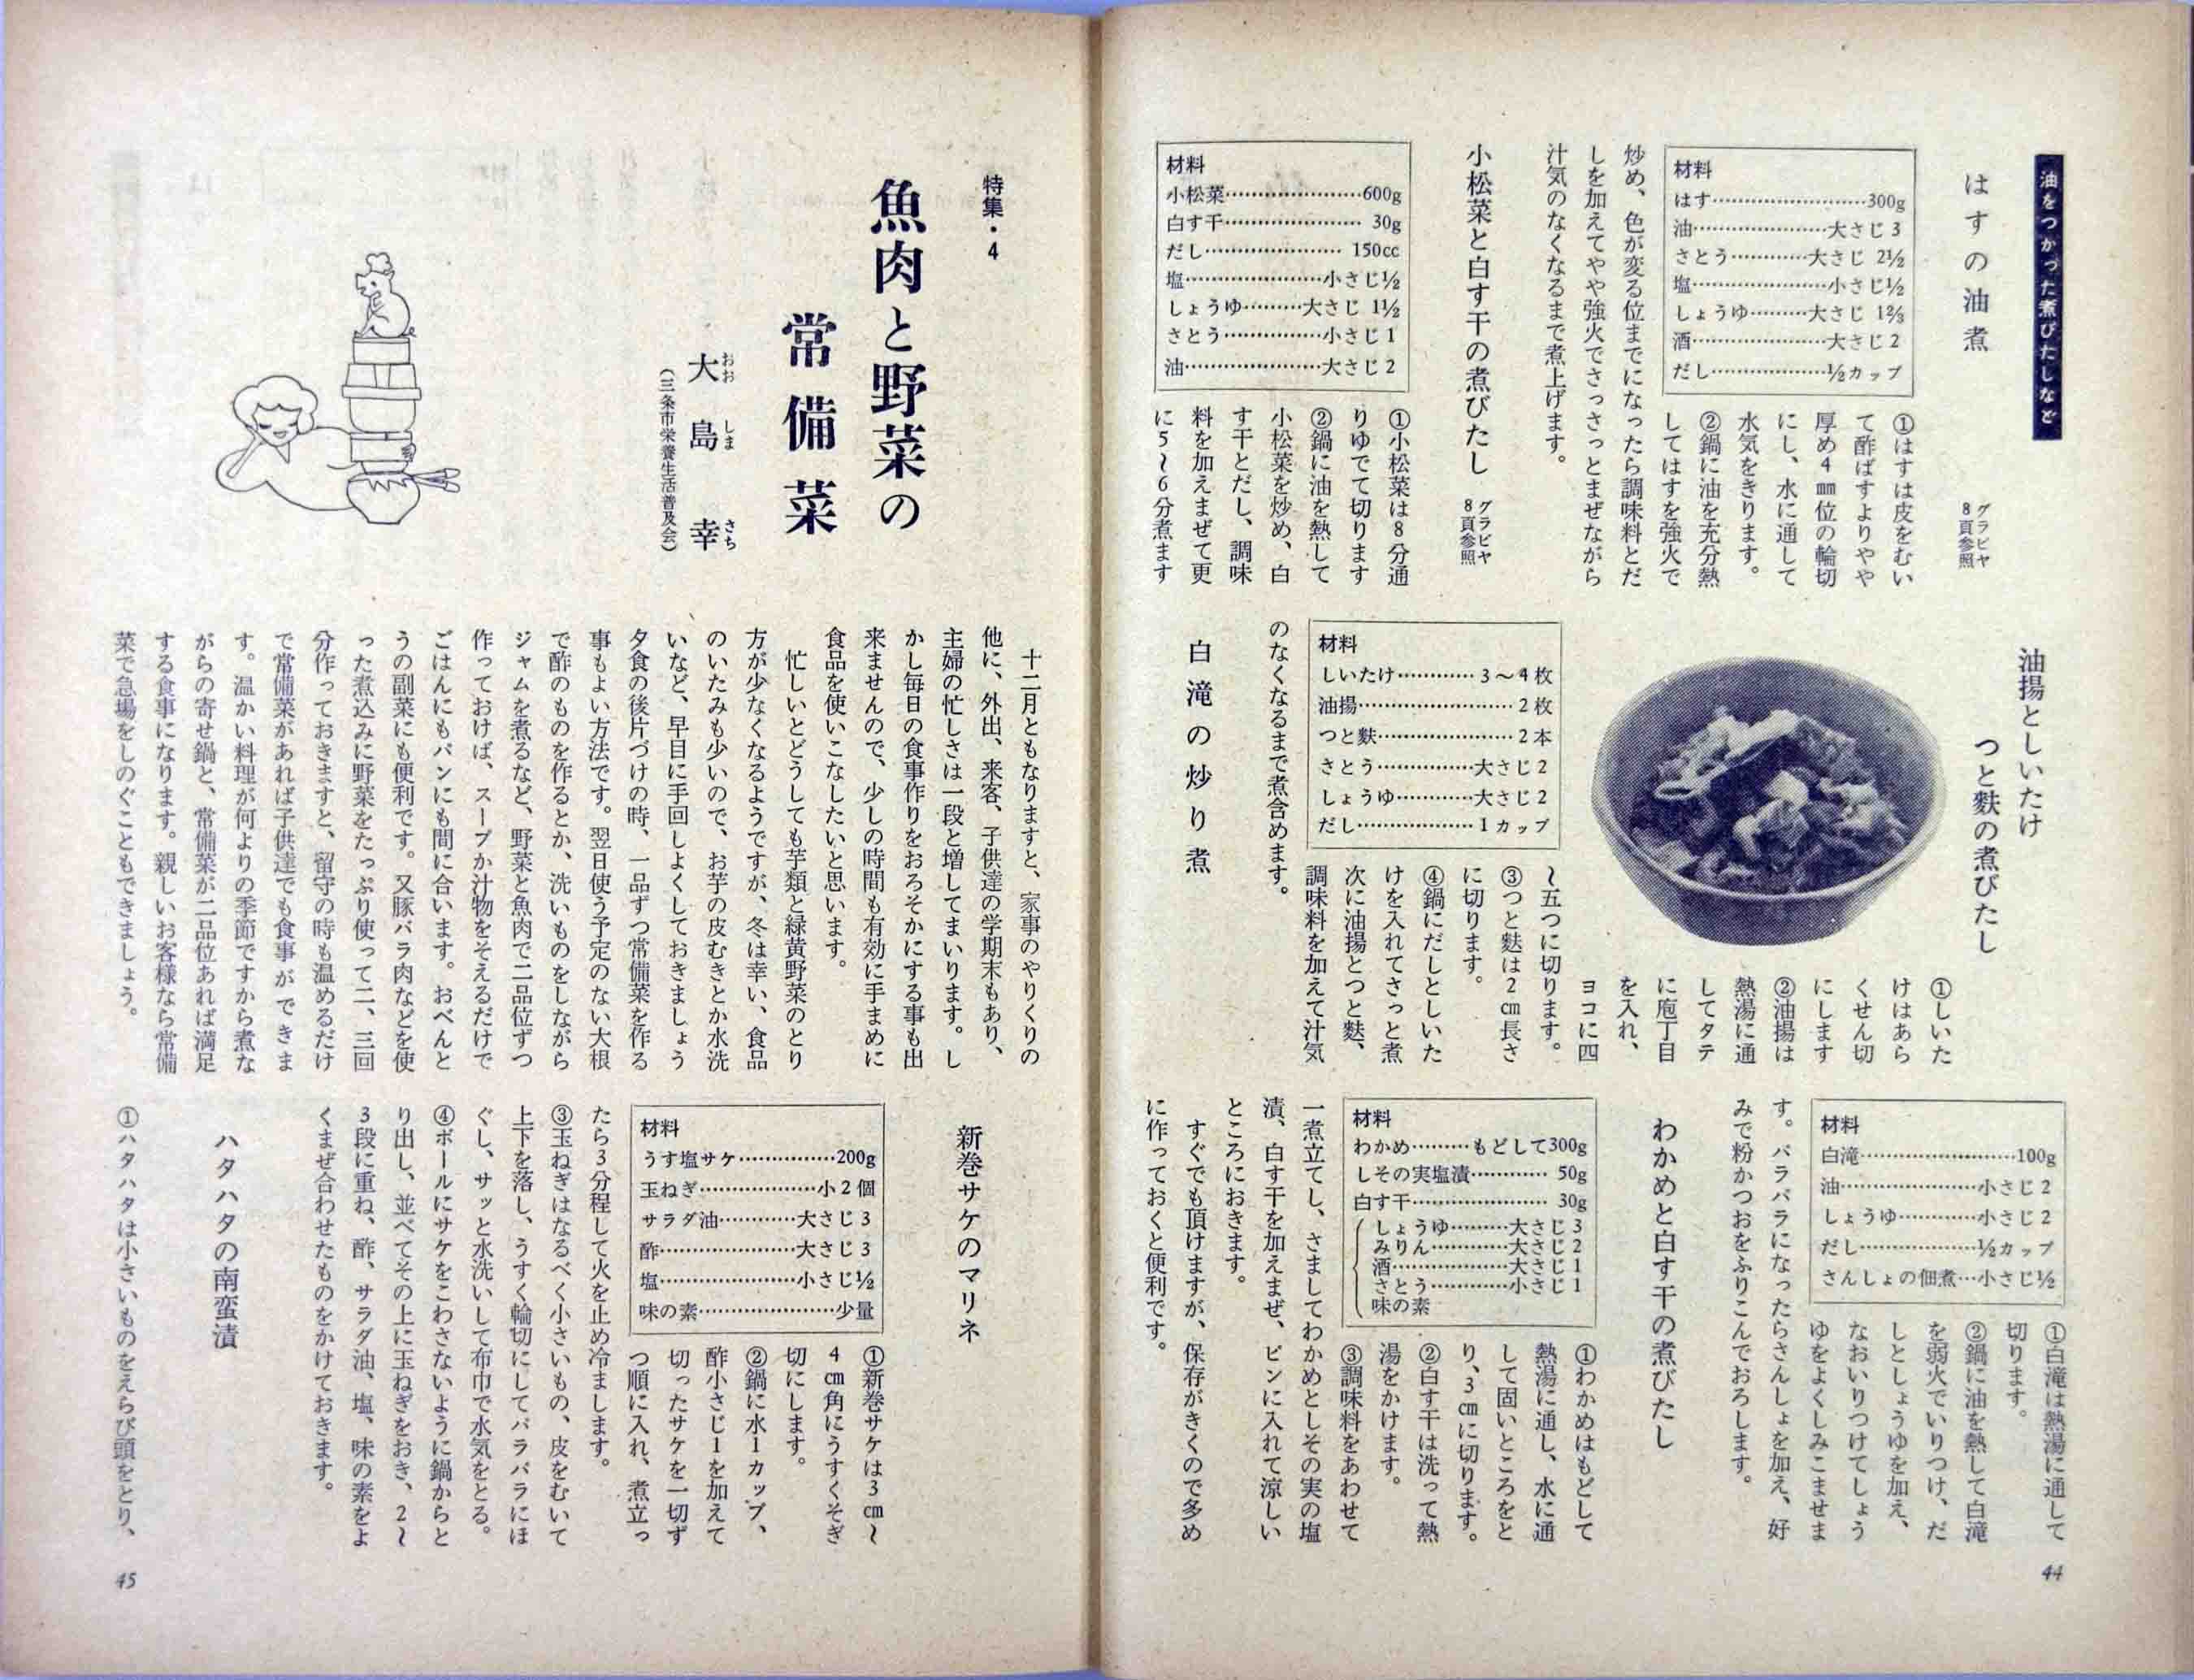 油をつかった煮びたしなど
はすの油煮
グラビヤ
8頁参照
材料
はす……………………300g
油…………………大さじ 3
さとう…………大さじ 2½
塩…………………小さじ½
しょうゆ………大さじ 1⅔
酒…………………大さじ 2
だし………………½カップ
①はすは皮をむい
て酢ばすよりやや
厚め4㎜位の輪切
にし、水に通して
水気をきります。
②鍋に油を充分熱
してはすを強火で
炒め、色が変る位までになったら調味料とだ
しを加えてやや強火でさっさっとまぜながら
汁気のなくなるまで煮上げます。
小松菜と白す干の煮びたし
グラビヤ
8頁参照
材料
小松菜…………………600g
白す干………………… 30g
だし………………… 150cc
塩…………………小さじ½
しょうゆ………大さじ 1½
さとう……………小さじ 1
油…………………大さじ 2
①小松菜は8分通
りゆでて切ります
②鍋に油を熱して
小松菜を炒め、白
す干とだし、調味
料を加えまぜて更
に5〜6分煮ます
油揚としいたけ
つと麩の煮びたし
①しいた
けはあら
くせん切
にします
②油揚は
熱湯に通
してタテ
に庖丁目
を入れ、
ヨコに四
〜五つに切ります。
③つと麩は2㎝長さ
に切ります。
④鍋にだしとしいた
けを入れてさっと煮
次に油揚とつと麩、
調味料を加えて汁気
材料
しいたけ………… 3〜4 枚
油揚…………………… 2 枚
つと麩………………… 2 本
さとう……………大さじ 2
しょうゆ…………大さじ 2
だし……………… 1 カップ
のなくなるまで煮含めます。
白滝の炒り煮
材料
白滝……………………100g
油…………………小さじ 2
しょうゆ…………小さじ 2
だし………………½カップ
さんしょの佃煮…小さじ½
①白滝は熱湯に通して
切ります。
②鍋に油を熱して白滝
を弱火でいりつけ、だ
しとしょうゆを加え、
なおいりつけてしょう
ゆをよくしみこませま
す。バラバラになったらさんしょを加え、好
みで粉かつおをふりこんでおろします。
わかめと白す干の煮びたし
材料
わかめ………もどして300g
しその実塩漬………… 50g
白す干………………… 30g
しょうゆ………大さじ 3
みりん…………大さじ 2
酒………………大さじ 1
さとう…………小さじ 1
味の素
①わかめはもどして
熱湯に通し、水に通
して固いところをと
り、3㎝に切ります。
②白す干は洗って熱
湯をかけます。
③調味料をあわせて
一煮立てし、さましてわかめとしその実の塩
漬、白す干を加えまぜ、ビンに入れて涼しい
ところにおきます。
すぐでも頂けますが、保存がきくので多め
に作っておくと便利です。
44
特集・4
魚肉と野菜の
常備菜
大島幸
おおしまさち
(三条市栄養生活普及会)
十二月ともなりますと、家事のやりくりの
他に、外出、来客、子供達の学期末もあり、
主婦の忙しさは一段と増してまいります。し
かし毎日の食事作りをおろそかにする事も出
来ませんので、少しの時間も有効に手まめに
食品を使いこなしたいと思います。
忙しいとどうしても芋類と緑黄野菜のとり
方が少なくなるようですが、冬は幸い、食品
のいたみも少いので、お芋の皮むきとか水洗
いなど、早目に手回しよくしておきましょう
夕食の後片づけの時、一品ずつ常備菜を作る
事もよい方法です。翌日使う予定のない大根
で酢のものを作るとか、洗いものをしながら
ジャムを煮るなど、野菜と魚肉で二品位ずつ
作っておけば、スープか汁物をそえるだけで
ごはんにもパンにも間に合います。おべんと
うの副菜にも便利です。又豚バラ肉などを使
った煮込みに野菜をたっぷり使って二、三回
分作っておきますと、留守の時も温めるだけ
で常備菜があれば子供達でも食事ができま
す。温かい料理が何よりの季節ですから煮な
がらの寄せ鍋と、常備菜が二品位あれば満足
する食事になります。親しいお客様なら常備
菜で急場をしのぐこともできましょう。
新巻サケのマリネ
材料
うす塩サケ……………200g
玉ねぎ………………小 2 個
サラダ油…………大さじ 3
酢…………………大さじ 3
塩…………………小さじ½
味の素…………………少量
①新巻サケは3㎝〜
4㎝角にうすくそぎ
切にします。
②鍋に水1カップ、
酢小さじ1を加えて
切ったサケを一切ず
つ順に入れ、煮立っ
たら3分程して火を止め冷まします。
③玉ねぎはなるべく小さいもの、皮をむいて
上下を落し、うすく輪切にしてバラバラにほ
ぐし、サッと水洗いして布巾で水気をとる。
④ボールにサケをこわさないように鍋からと
り出し、並べてその上に玉ねぎをおき、2〜
3段に重ね、酢、サラダ油、塩、味の素をよ
くまぜ合わせたものをかけておきます。
ハタハタの南蛮漬
①ハタハタは小さいものをえらび頭をとり、
45